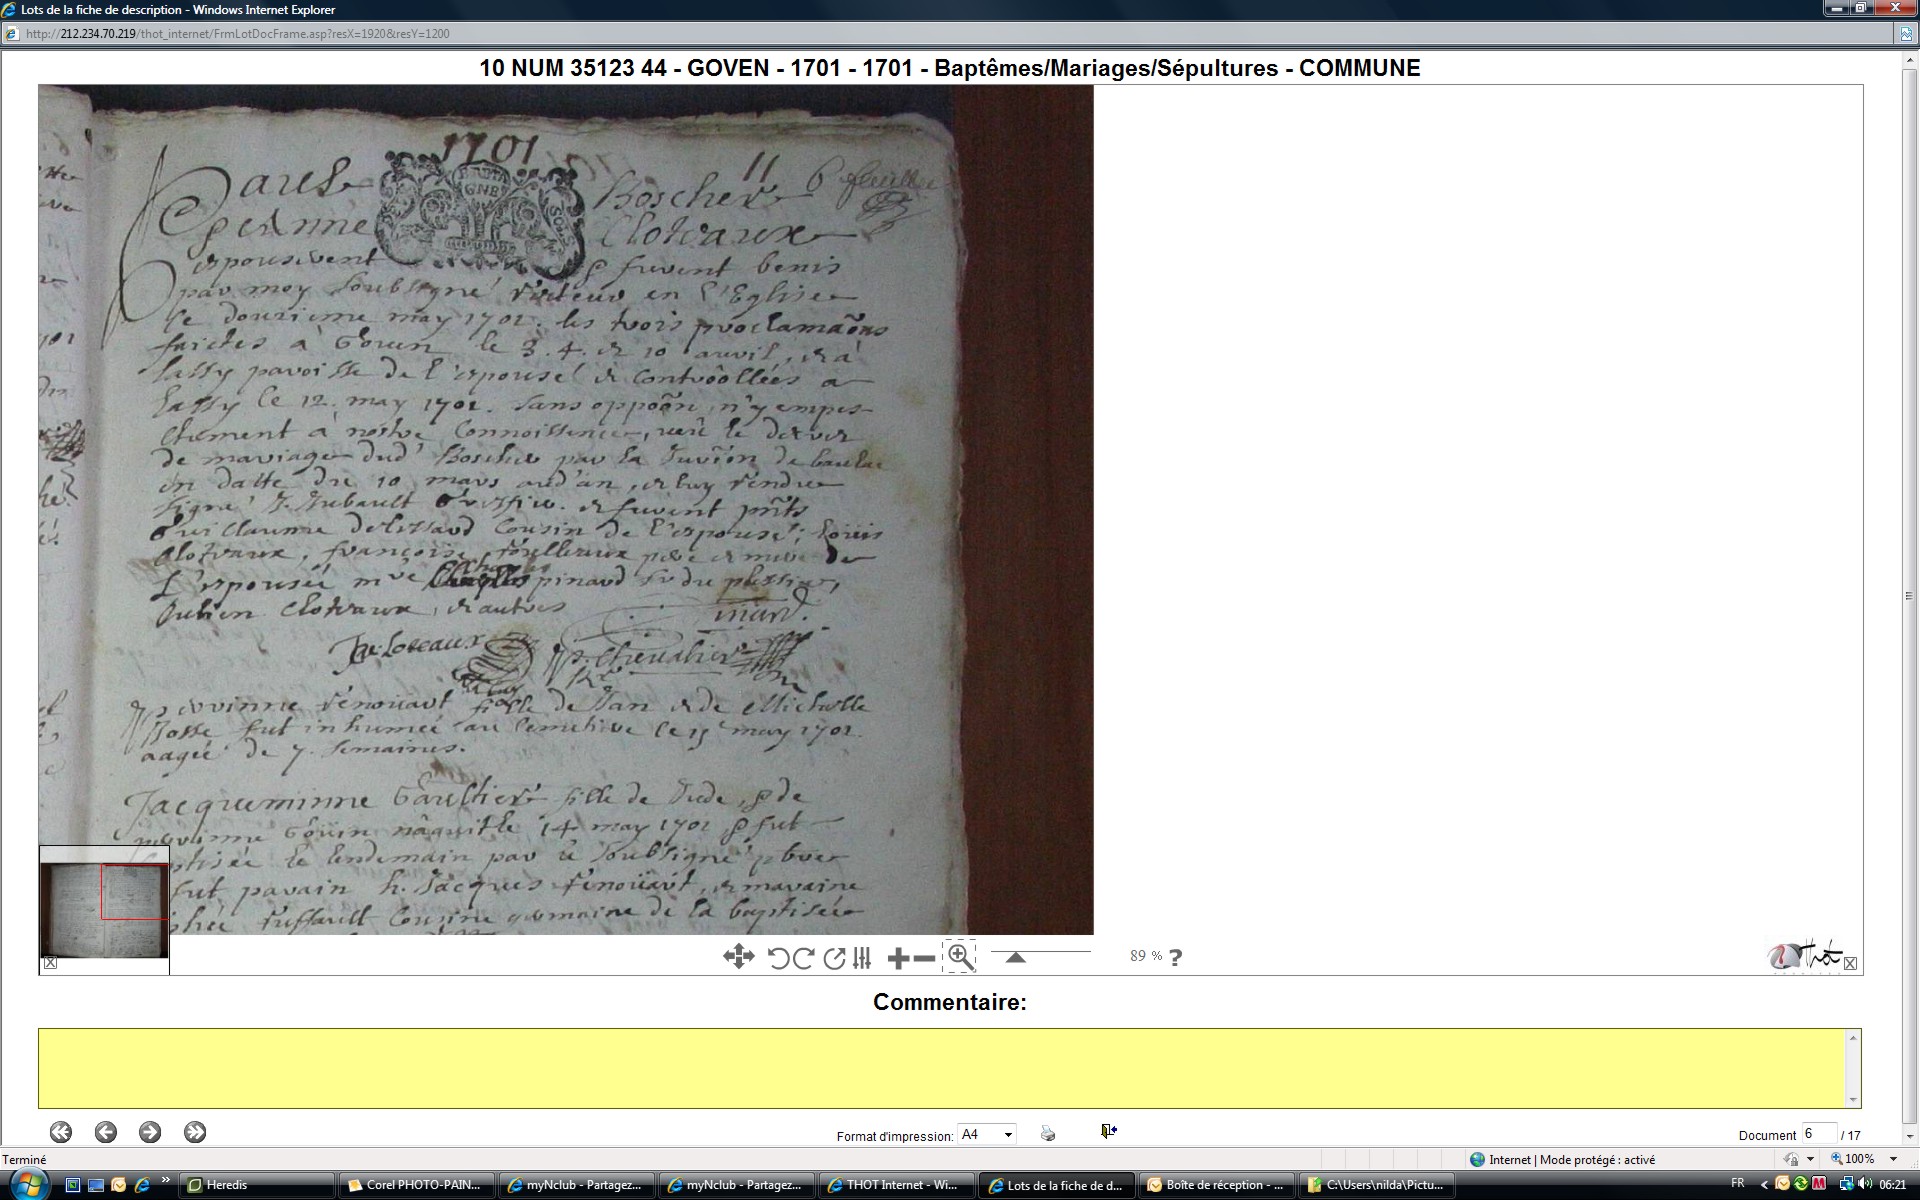 Lots de la fiche de description - Windows Internet Explorer
http://212.234.70.219/thot_internet/FrmLotDocFrame.asp?resX=1920&resY=1200
10 NUM 35123 44 - GOVEN - 1701 - 1701 - Baptêmes/Mariages/Sépultures - COMMUNE
1701
11
6 feuille
Boscher
perinne Cloteaux
espouserent & furent benis
par moy soubsigné recteur en l'Eglise
le douzieme may 1701. les trois proclamaõns
faictes à Goven le 3. 4. et 10 avril, et à
lassy paroisse de l'espousé et controollées a
lassy le 12. may 1701. sans oppoõn, n'y empes-
chement à nostre connoissence, veu le decret
de mariage dud' Boscher par la
en datte du 10 mars aud' an, et
signé greffier. et furent pñts
Guillaume cousin de l'espousé; louis
Clotraux, françoise pere et mere de
L'espousée, mre Charles pinard sr du plessix,
Julien Clotraux, et autres
pinard.
J. Cloteaux
p. Chevalier
perinne renouart fille de Jan et de Michelle
Bosse fut inhumée au cemetiere le 15 may 1701.
aagée de 7. semaines.
Jacqueminne Gaultier fille de Jude, & de
perinne Gouin naquit le 14 may 1701 & fut
le lendemain par le soubsigné pbre
fut parain h. Jacques renoüart, et maraine
ruffault cousine germaine de la baptisée
89 % ?
Thot
Commentaire:
Format d'impression: A4
Document 6 / 17
Terminé
Internet | Mode protégé : activé
100%
Heredis
Corel PHOTO-PAIN...
myNclub - Partagez...
myNclub - Partagez...
THOT Internet - Wi...
Lots de la fiche de d...
Boîte de réception - ...
C:\Users\nilda\Pictu...
FR
06:21